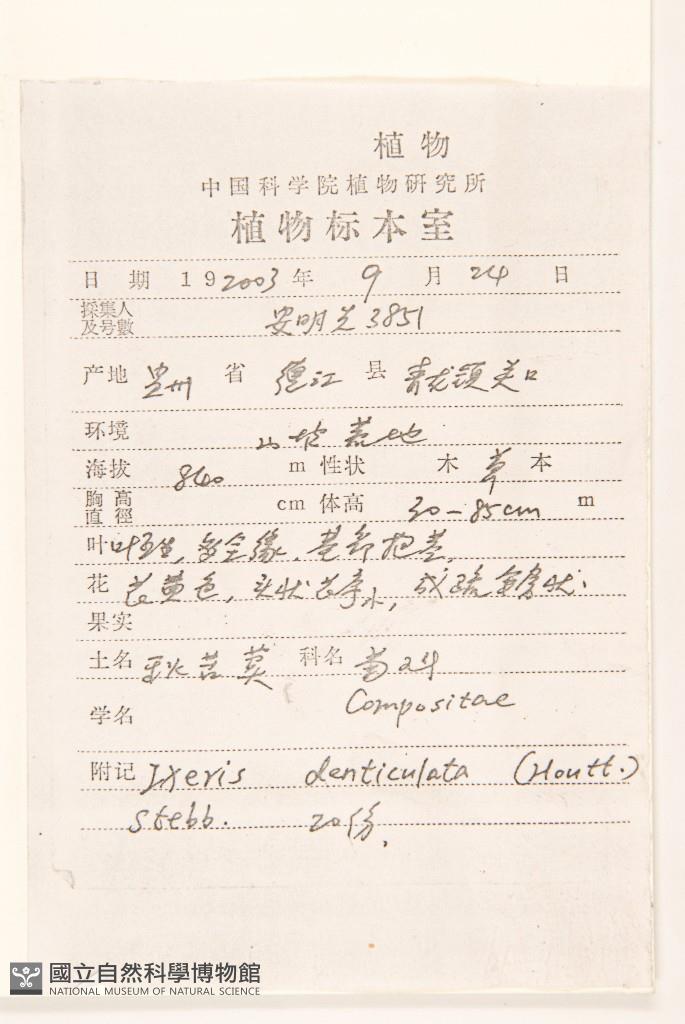 植物
中国科学院植物研究所
植物标本室
日期 192003年 9月24日
採集人及号數 安明先3851
产地 贵州省 德江县 青龙镇关口
环境 山坡荒地
海拔 840 m 性状 木草本
胸高直徑 cm 体高 30-85cm m
叶 叶互生,多全缘,基部抱茎.
花 花黄色,头状花序小,成疏伞房状.
果实
土名 秋苦荬 科名 菊科
学名 Compositae
附记 Ixeris denticulata (Houtt.)
Stebb. 20份.
國立自然科學博物館
NATIONAL MUSEUM OF NATURAL SCIENCE